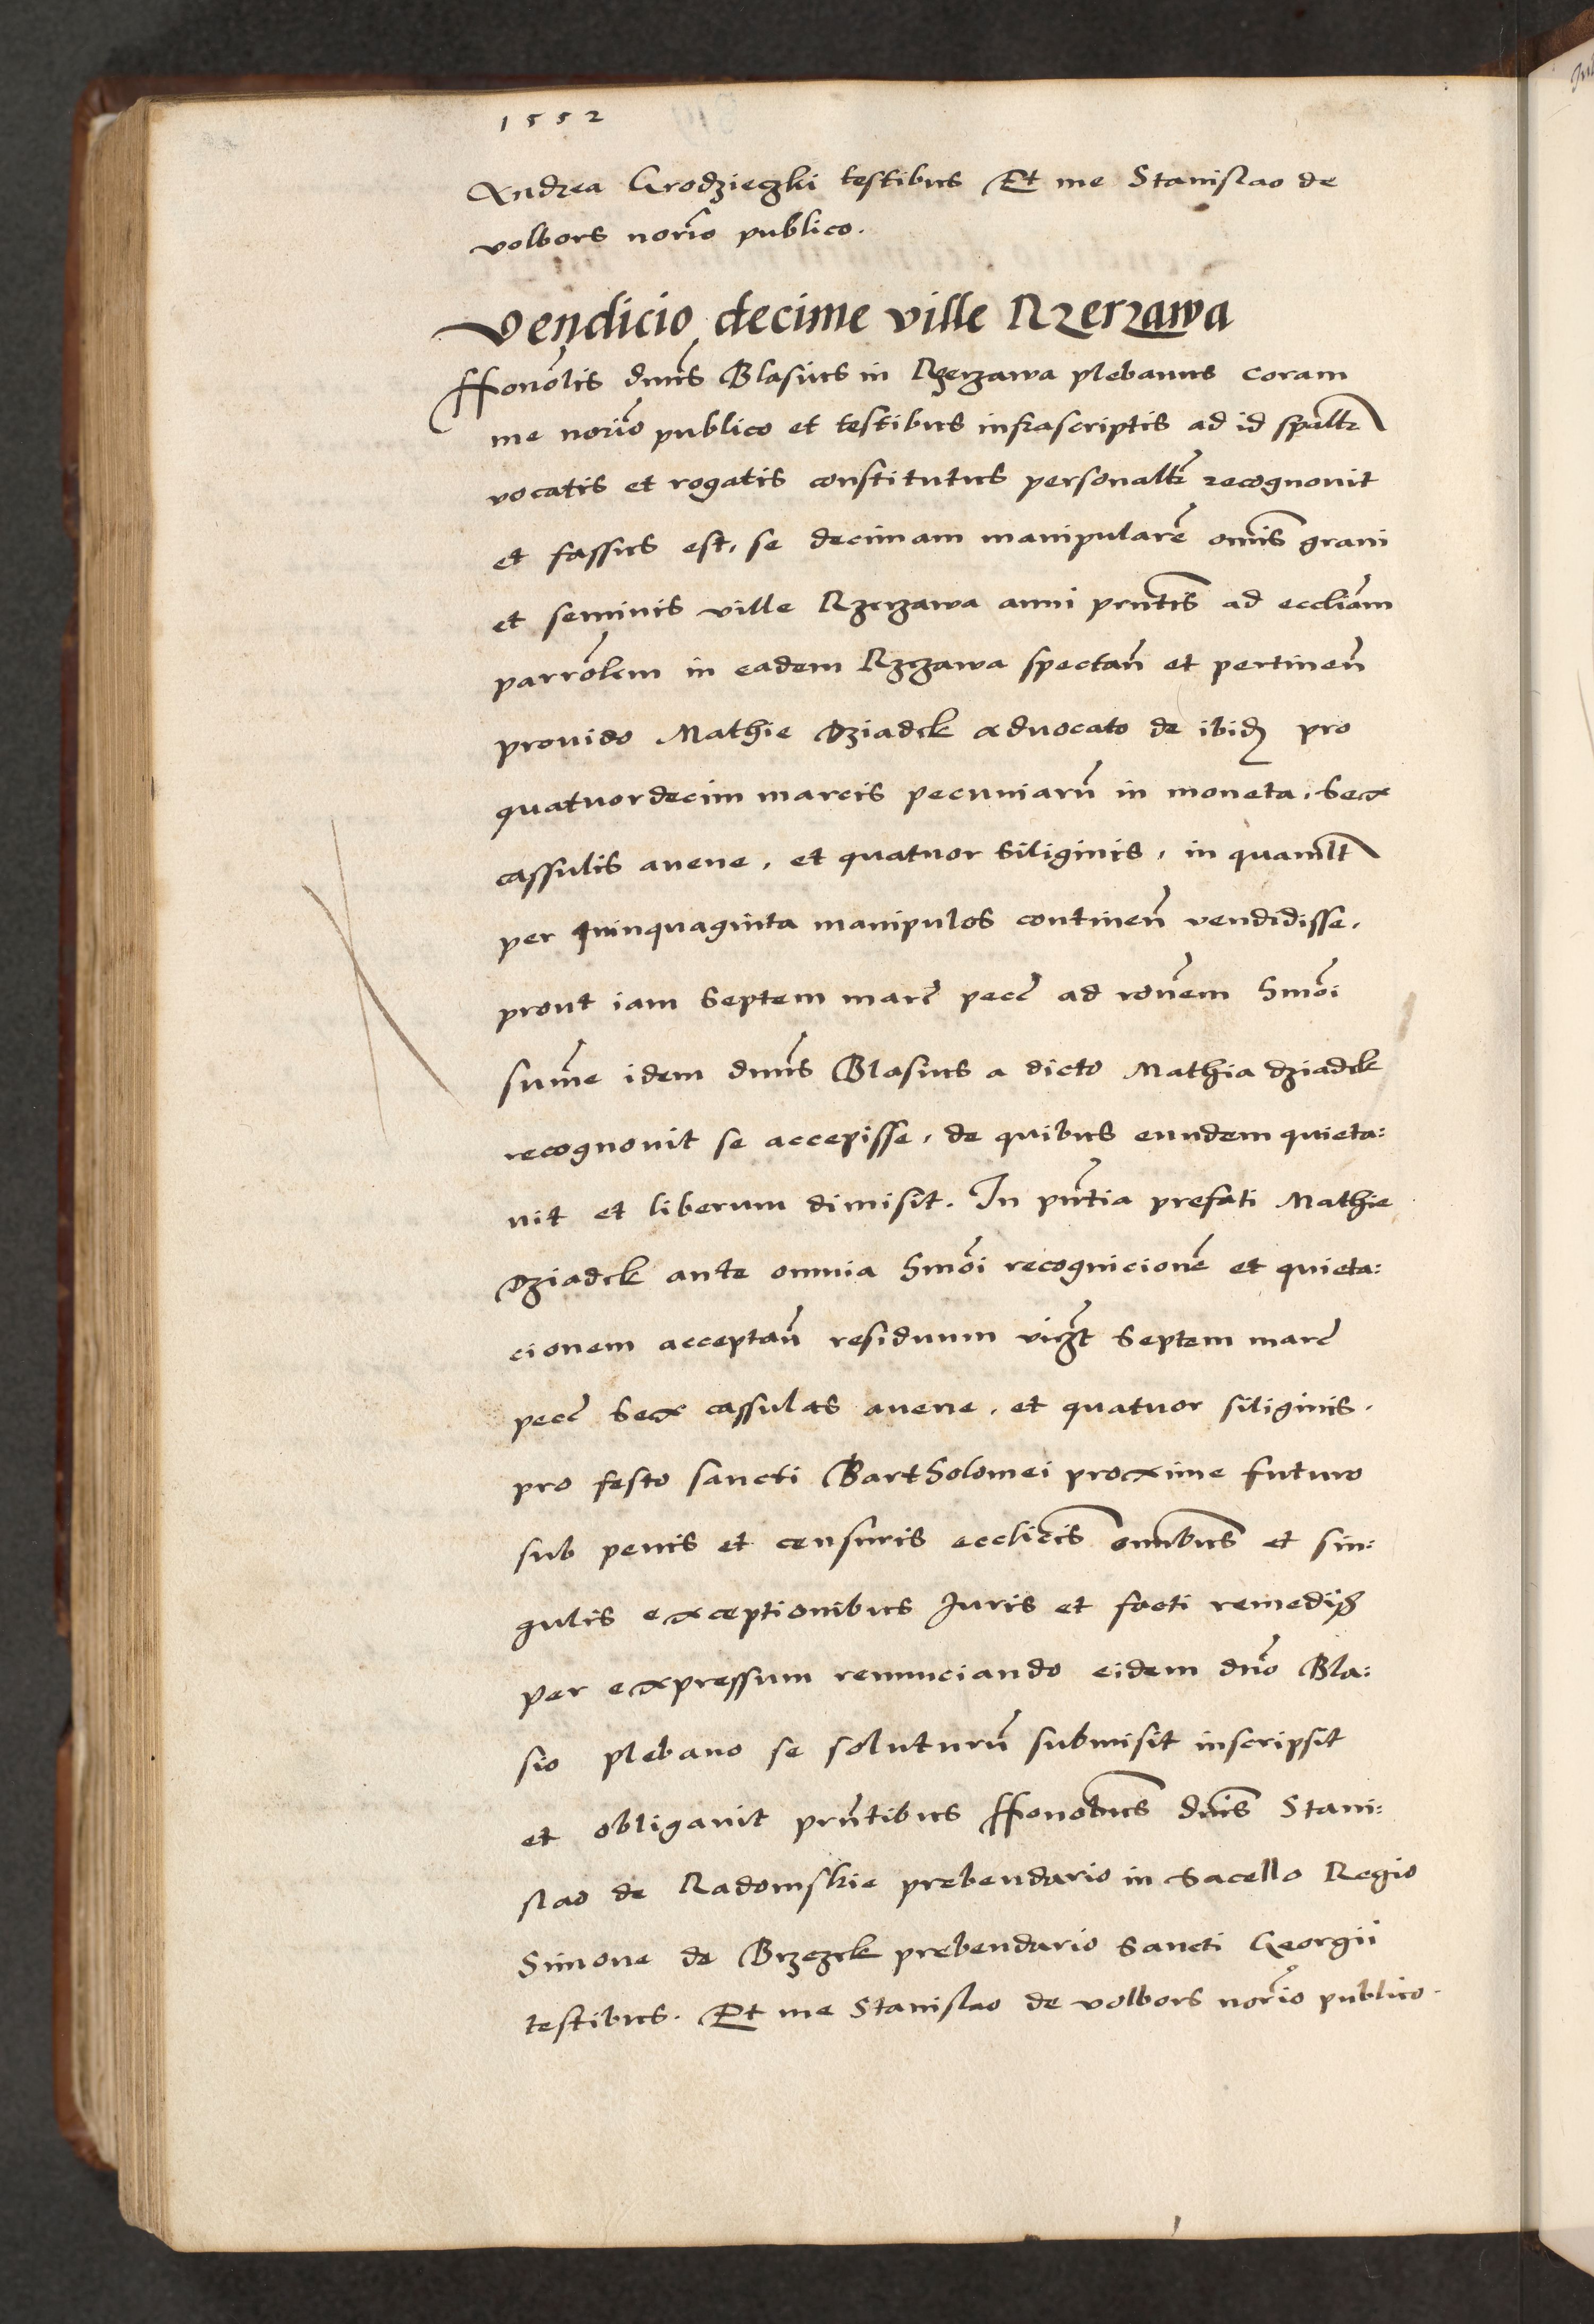 1552
Andrea Grodzieczki testibus Et me Stanislao de
volbors norio publico.
Vendicio decime ville Rzerzawa
Honolis dnus Blasius in Rzerzawa plebanus coram
me norio publico et testibus infrascriptis ad id spaltr
vocatis et rogatis constitutus personaltr recognovit
et fassus est, se decimam manipularem omis grani
et seminis ville Rzerzawa anni prntis ad eccliam
parrolem in eadem Rzgzawa spectan et pertinen
provido Mathie Dziadek advocato de ibid pro
quatuordecim marcis pecuniarum in moneta, sex
cassulis avene, et quatuor siliginis, in qualt
per quinquaginta manipulos continen vendidisse,
prout iam septem marc pecc ad ronem hmoi
summe idem dnus Blasius a dicto Mathia dziadek
recognovit se accepisse, de quibus eundem quieta:
vit et liberum dimisit. In pntia prefati Mathie
Dziadek ante omnia hmoi recognicionem et quieta:
cionem acceptan residuum septem marc
pecc sex cassulas avene, et quatuor siliginis,
pro festo sancti Bartholomei proxime futuro
sub penis et censuris ecclicis omnibus et sin:
gulis exceptionibus Juris et facti remediis
per expressum renunciando eidem dno Bla:
sio plebano se soluturum submisit inscripsit
et obligavit prntibus Honobus dnis Stani:
slao de Radomskie prebendario in sacello Regio
Simone de Brzezek prebendario sancti Georgii
testibus. Et me Stanislao de volbors norio publico.